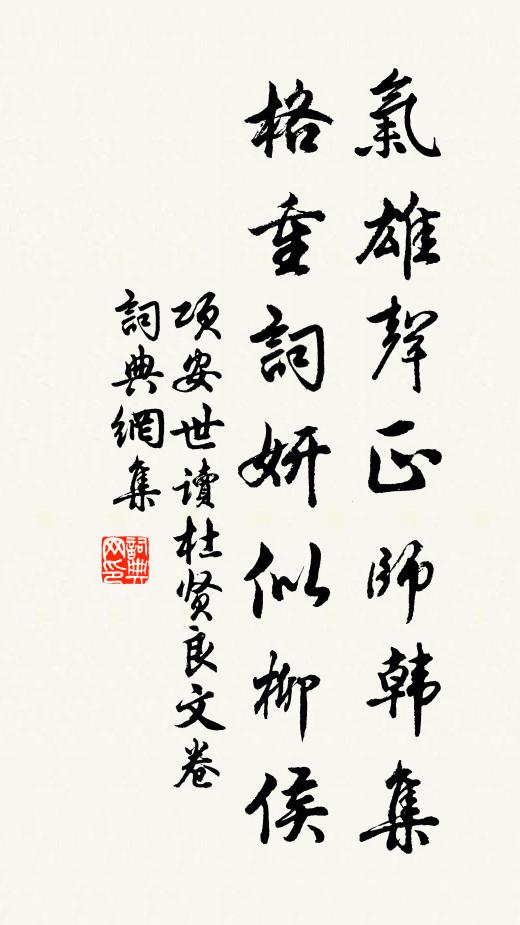 氣雄聲正師韩集
格重詞妍似柳侯
項安世讀杜贤良文卷
詞典網集
詞典网印